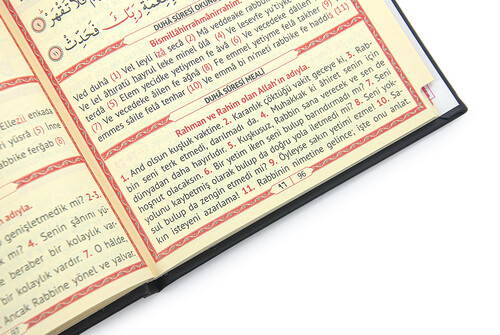 فَلَا تَقْهَرْ
رَبِّكَ فَحَدِّثْ ﴿١١﴾
DUHÂ SÛRESİ
Bismillâhirrahmânirrahîm.
Ved duhâ (1) Vel leyli izâ secâ (2) Mâ veddeake
Ve lel âhıratü hayrul leke minel ûlâ (4) Ve lesevfe
terdâ (5) Elem yecidke yetîmen fe âvâ (6) Ve vecedeke
(7) Ve vecedeke âilen fe ağnâ (8) Fe emmel yetîme felâ takher (9)
emmes sâile felâ tenhar (10) Ve emmâ bi ni'meti rabbike fe haddis (11)
DUHÂ SÛRESİ MEALİ
Rahman ve Rahîm olan Allah'ın adıyla.
1. And olsun kuşluk vaktine. 2. Karanlık çöktüğü vakit geceye ki, 3. Rab-
bin seni terk etmedi, darılmadı da. 4. Muhakkak ki âhiret senin için
dünyadan daha hayırlıdır. 5. Kuşkusuz, Rabbin sana verecek ve sen de
hoşnut olacaksın. 6. Bir yetim iken seni bulup barındırmadı mı? 7. Seni
yolunu kaybetmiş olarak bulup da doğru yola iletmedi mi? 8. Seni yok-
sul bulup da zengin etmedi mi? 9. Öyleyse sakın yetimi ezme! 10. Sa-
kın isteyeni azarlama! 11. Rabbinin nimetine gelince; işte onu anlat.
96
Ellezî enkada
yüsrâ (5) İnne
rabbike ferğab (8)
adıyla.
genişletmedik mi? 2-3.
mi? 4. Senin şânını yü-
e beraber bir kolaylık var-
bir kolaylık vardır. 7. O hâlde,
Ancak Rabbine yönel ve yalvar.
97